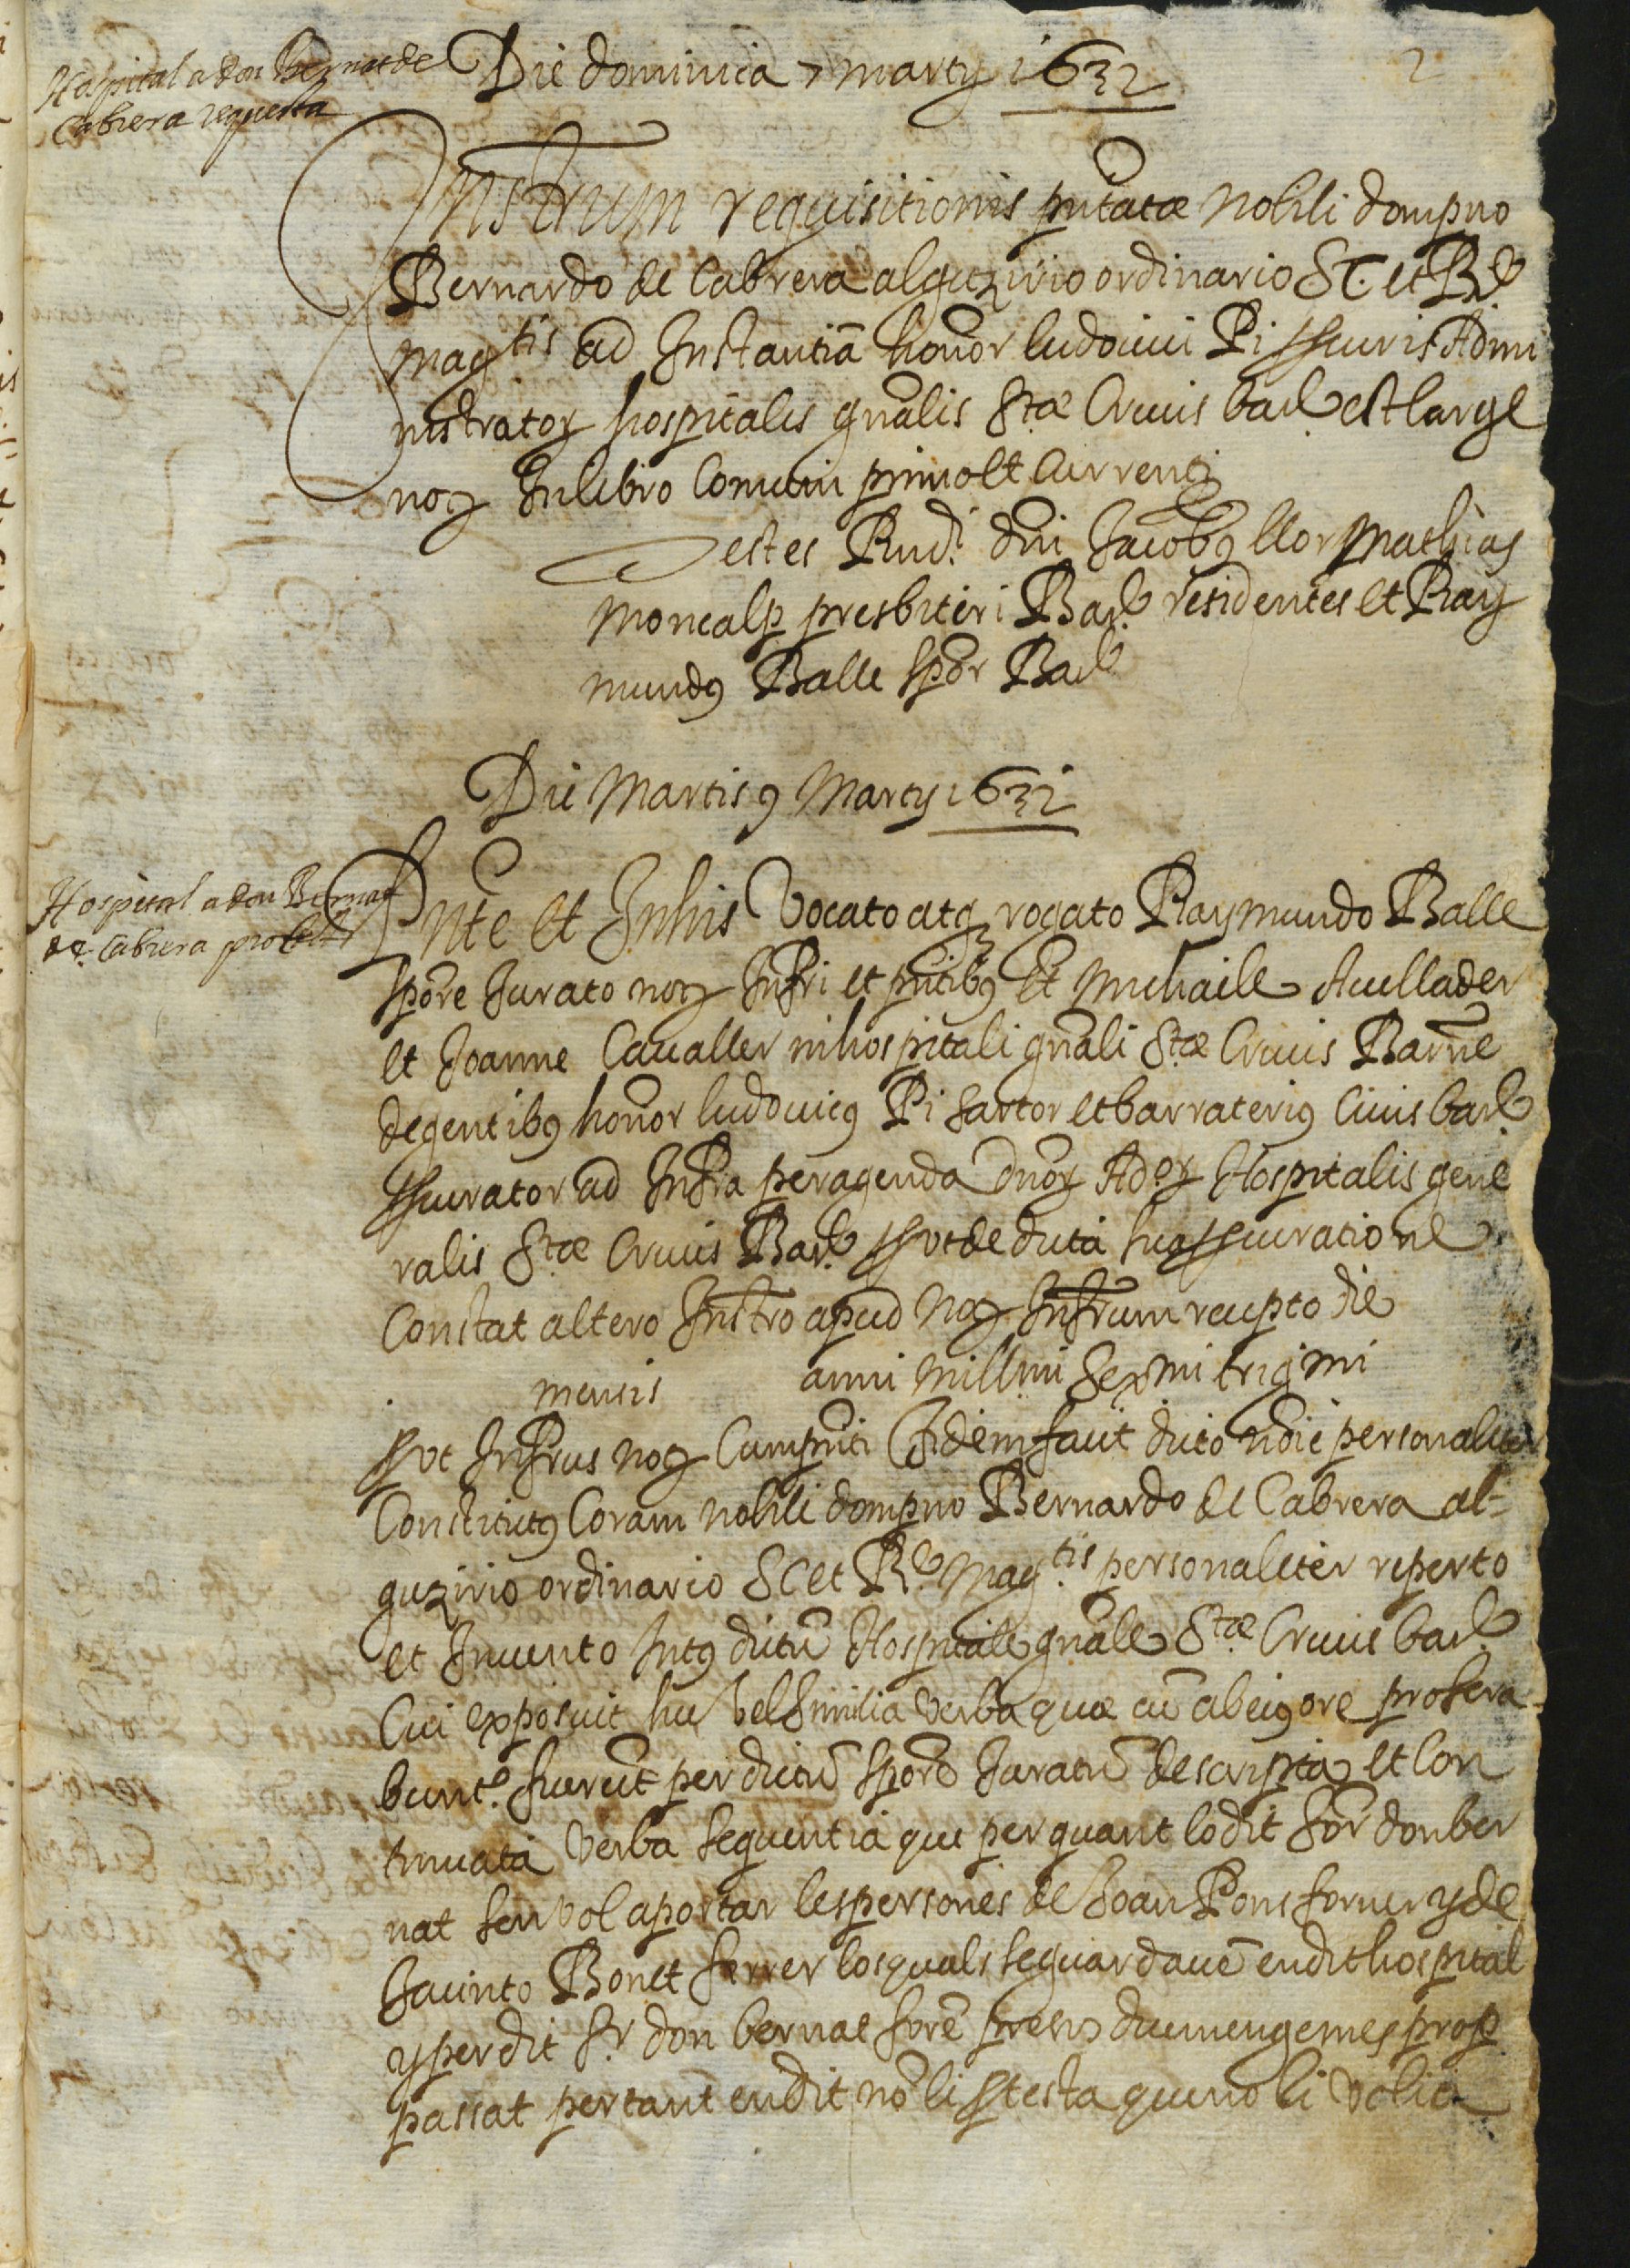 2
Hospital a don Bernat de
Cabrera requesta
Die dominica 7 marty 1632
Instrum requisitionis pntatæ nobili dompno
Bernardo de Cabrera alguzirio ordinario S C. et R.
mag.tis ad Instantiã honor ludouici Pi procuris Admi
nistrator hospitalis gnalis S.tæ Crucis bar. est large
not In libro Comuni primo et Currenti
Testes Rndi dni Jacobus llor Mathias
Moncalp presbiteri Bar. residentes et Ray
mundus Balle sptor Bar.
Die Martis 9 Marty 1632
Hospital a don Bernat
de Cabrera protesta
Pnte et Inhis Vocato atq rogato Raymundo Balle
sptore Jurato not Infri et pntibus et Michaile Auellader
et Joanne Caualler in hospitali gnali S.tæ Crucis Barne
degentibus honor ludouicus Pi sartor et barraterius Ciuis bar.
procurator ad Infra peragenda dnor Ador Hospitalis gene
ralis S.tæ Crucis Bar. prout de dicta sua procuratione
Constat altero Instro apud not Infrum recepto die
mensis anni millmi sexmi trigmi
prout Infrus not Cum pnti fidem facit dicto nõie personaliter
Constitutus Coram nobili dompno Bernardo de Cabrera al-
guzirio ordinario S C et R. Mag.tis personaliter reperto
et Inuento Intus dictũ Hospitale gnale S.tæ Crucis bar.
Cui exposuit hæc vel similia verba quæ cũ ab eius ore profera
bunt.r fuerũt per dictũ sptorẽ Juratũ descripta et Con
tinuata verba sequentia que per quant lo dit Sor don ber
nat sen vol aportar les persones de Joan Pons forner y de
Jacinto Bonet ferrer los quals se guardauẽ en dit hospital
y per dit Sr. don bernat forẽ presos diumenge mes prop
passat per tant en dit nõ li protesta que no li volia